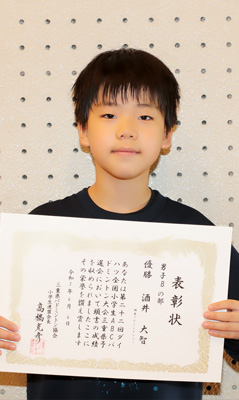 表彰状
男子Bの部
優勝 酒井 大智
あなたは第二十二回ダイ
ハツ全国小学生ABCバ
ドミントン大会三重県予
選会において頭書の成績
を収められましたここに
その栄誉を讃え賞します
三重県バドミントン協会
小学生連盟会長